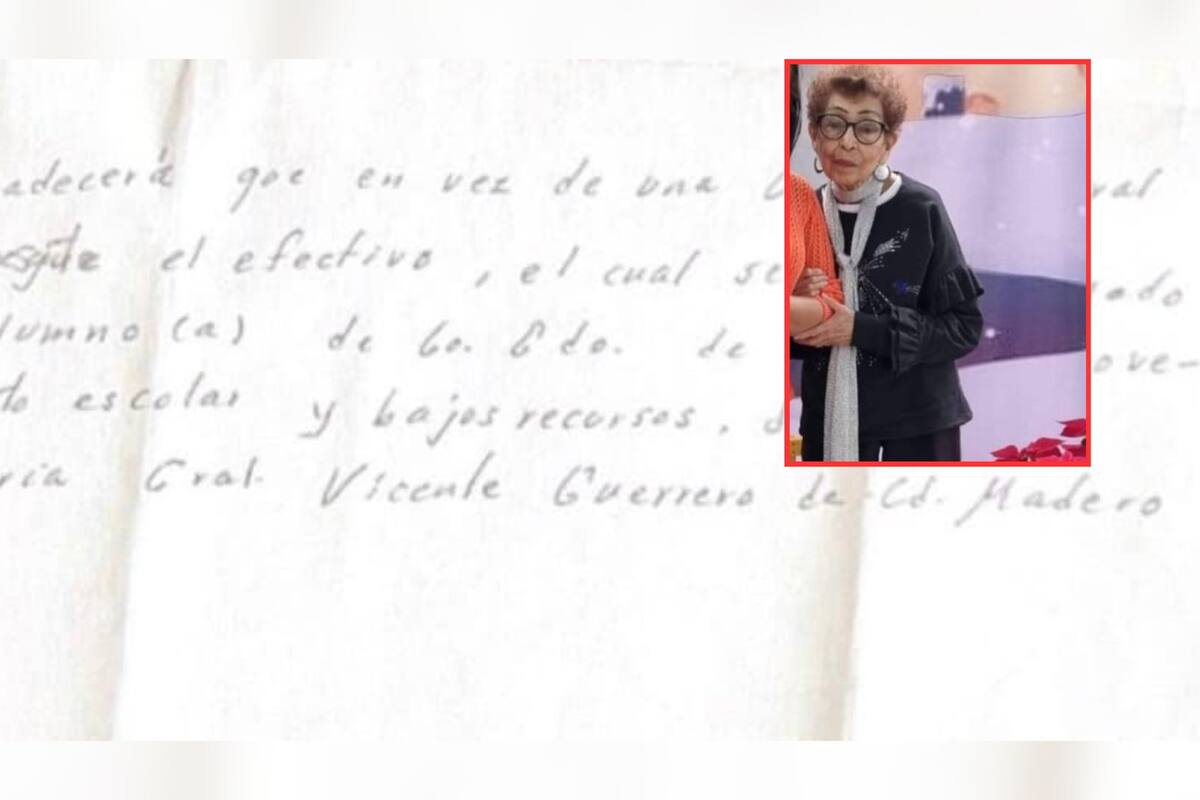 adecerá que en vez de una ral
el efectivo, el cual se ado
lumno (a) de 6o. Gdo. de ove-
to escolar y bajos recursos.
ria Gral. Vicente Guerrero de Cd. Madero